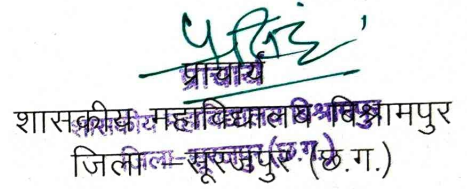 प्राचार्य
शासकीय महाविद्यालय बिश्रामपुर
जिला – सूरजपुर (छ.ग.)